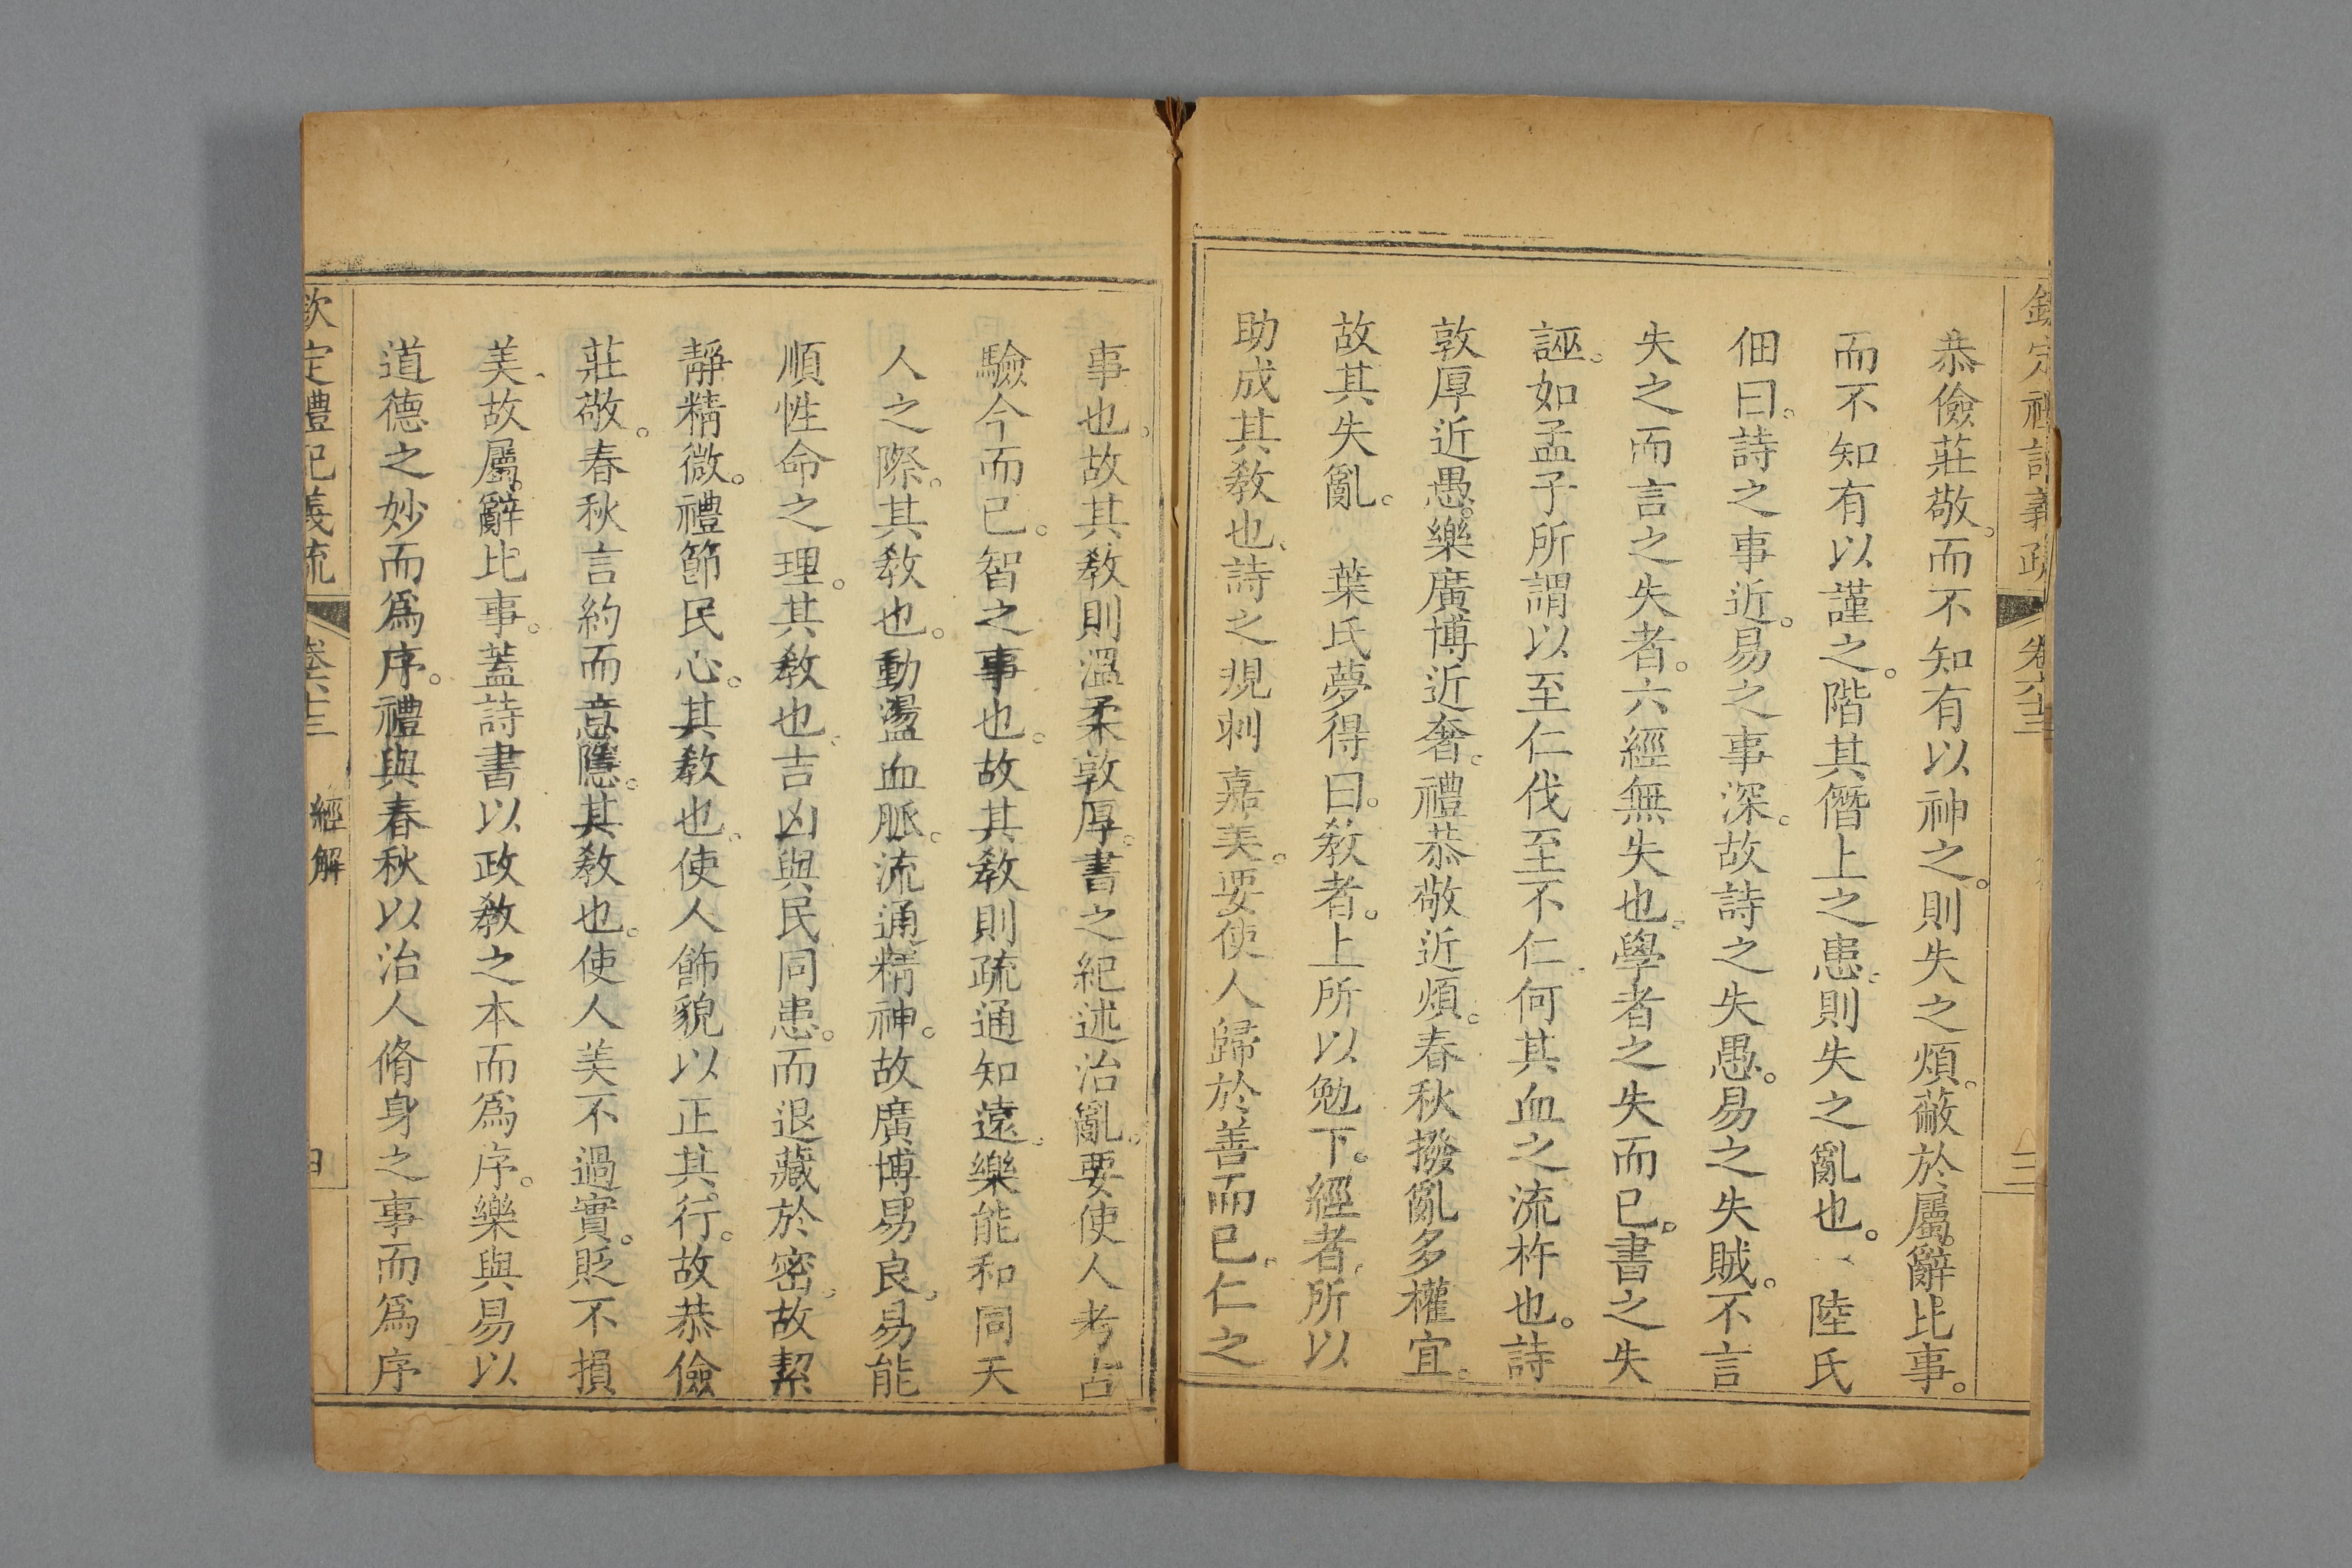 欽定禮記義疏 卷六十三 三
恭儉莊敬。而不知有以神之。則失之煩。蔽於屬辭比事。
而不知有以謹之。階其僭上之患。則失之亂也。 陸氏
佃曰。詩之事近。易之事深。故詩之失愚。易之失賊。不言
失之而言之失者。六經無失也。學者之失而已。書之失
誣。如孟子所謂以至仁伐至不仁。何其血之流杵也。詩
敦厚近愚。樂廣博近奢。禮恭敬近煩。春秋撥亂多權宜。
故其失亂。 葉氏夢得曰。教者。上所以勉下。經者。所以
助成其教也。詩之規刺嘉美。要使人歸於善而已。仁之
事也。故其教則溫柔敦厚。書之紀述治亂。要使人考古
驗今而已。智之事也。故其教則疏通知遠。樂能和同天
人之際。其教也。動盪血脈。流通精神。故廣博易良。易能
順性命之理。其教也。吉凶與民同患。而退藏於密。故絜
靜精微。禮節民心。其教也。使人飾貌以正其行。故恭儉
莊敬。春秋言約而意隱。其教也。使人美不過實。貶不損
美。故屬辭比事。蓋詩書以政教之本而爲序。樂與易以
道德之妙而爲序。禮與春秋以治人脩身之事而爲序
欽定禮記義疏 卷六十三 經解 四